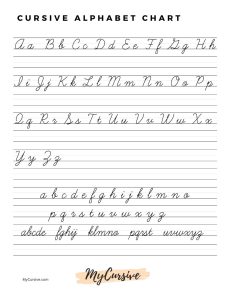 CURSIVE ALPHABET CHART
Aa Bb Cc Dd Ee Ff Gg Hh
Ii Jj Kk Ll Mm Nn Oo Pp
Qq Rr Ss Tt Uu Vv Ww Xx
Yy Zz
a b c d e f g h i j k l m n o
p q r s t u v w x y z
abcde fghij klmno pqrst uvwxyz
MyCursive.com
MyCursive